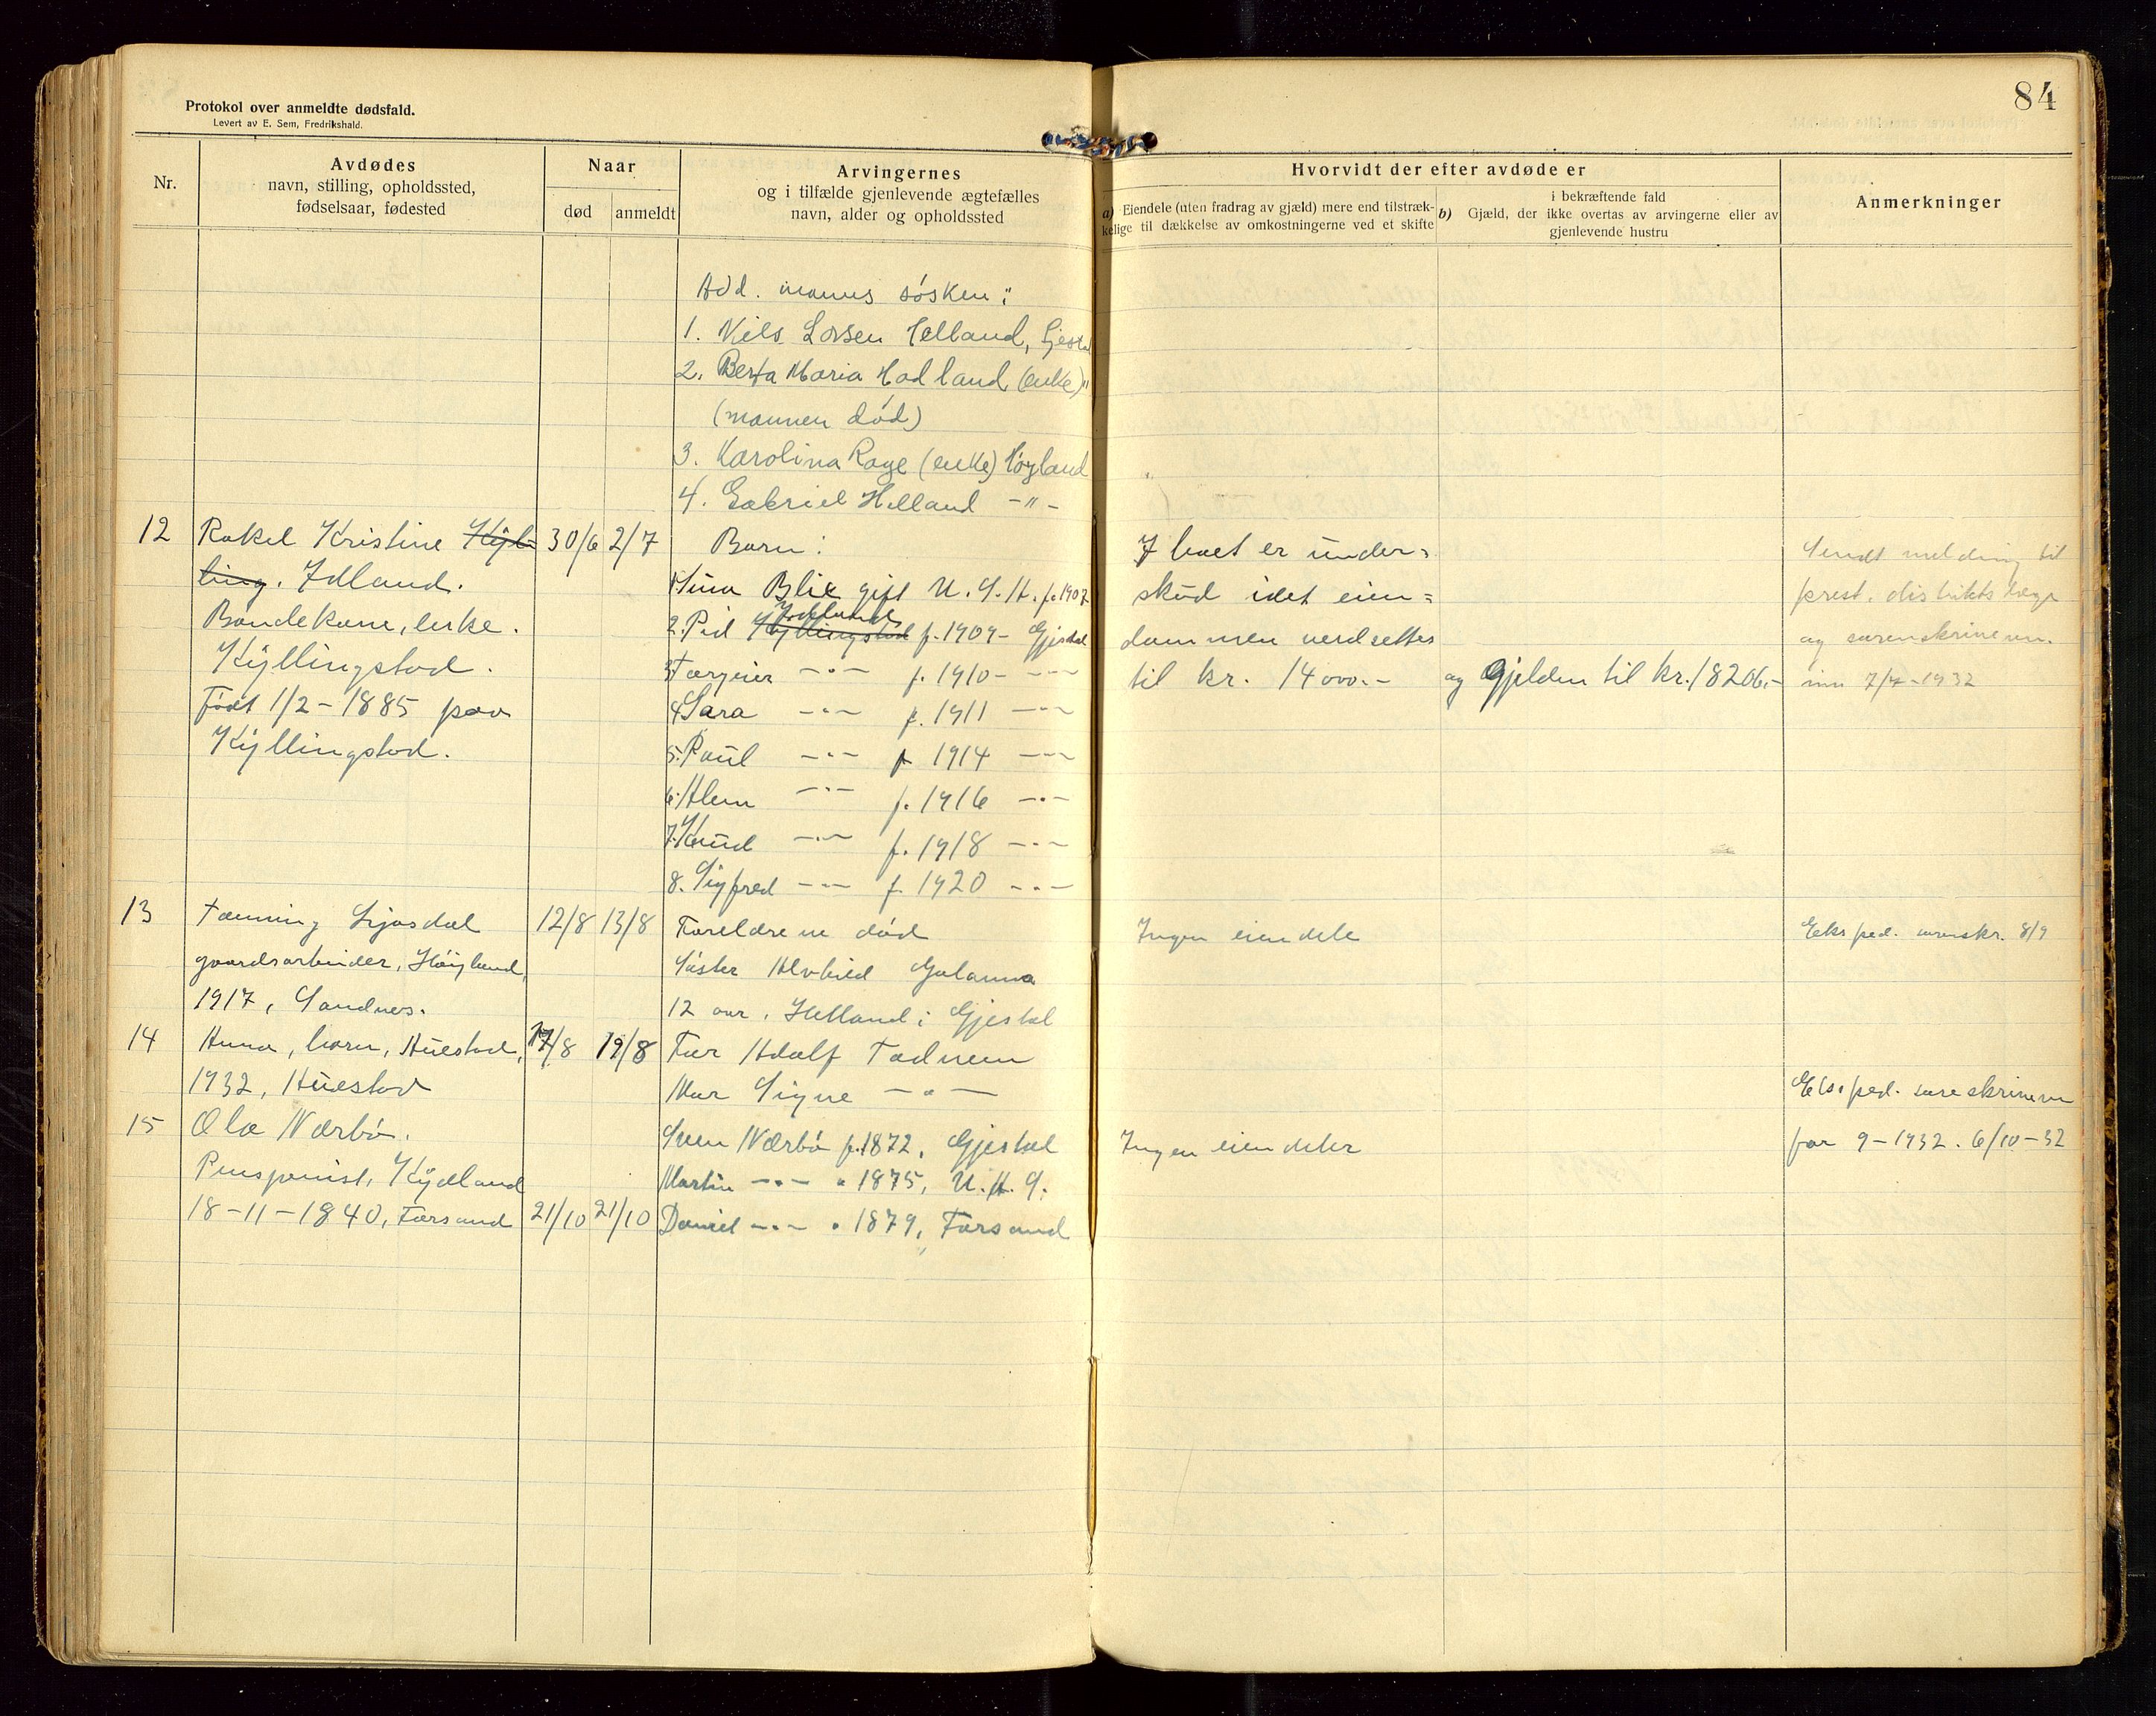 84
Protokol over anmeldte dødsfald.
Levert av E. Sem, Fredrikshald.
Nr.
Avdødes
navn, stilling, opholdssted,
fødselsaar, fødested
Naar
død
anmeldt
Arvingernes
og i tilfælde gjenlevende ægtefælles
navn, alder og opholdssted
Hvorvidt der efter avdøde er
a) Eiendele (uten fradrag av gjæld) mere end tilstræk-
kelige til dækkelse av omkostningerne ved et skifte
b)
i bekræftende fald
Gjæld, der ikke overtas av arvingerne eller av
gjenlevende hustru
Anmerkninger
Avd. manns søsken:
1. Nils Larsen Helland, Gjestal
2. Berta Maria Hadland, (enke) "
(mannen død)
3. Karolina Rage (enke) Høyland
4. Gabriel Helland -"-
12
Rakel Kristine Kyl-
ling. Idland.
Bondekone, enke.
Kyllingstad.
Født 1/2-1885 paa
Kyllingstad.
30/6 2/7
Barn:
1. Sina Blix gift U.S.A. f. 1907
Iddeland
2. Peil Kyllingstad f. 1909- Gjestal
3. Torgeir -"- f. 1910- -"-
4. Sara -"- f. 1911 -"-
5. Paul -"- f. 1914 -"-
6. Alem -"- f. 1916 -"-
7. Knud -"- f. 1918 -"-
8. Sigfred -"- f. 1920 -"-
I boet er under-
skud idet eien-
dommen verdsettes
til kr. 14000.- og gjelden til kr. 18206.-
Sendt melding til
prest. distriktslæge
og sorenskriveren.
7/7-1932
13
Tønning Ljosdal
gaardsarbeider, Høyland,
1917, Sandnes.
12/8 13/8
Foreldrene død
Søster Alvhild Galanna
12 aar, Helland i Gjestal
Ingen eiendele
Eksped. sorenskr. 8/9
14
Anna, barn, Auestad,
1932, Auestad
17/8 19/8
Far Adolf Tadnem
Mor Signe -"-
Eksped. soreskriveren
for 9-1932. 6/10-32
15
Ola Nærbø.
Pensjonist, Kydland
18-11-1840, Forsand
21/10 21/10
Sven Nærbø f. 1872, Gjestal
Martin -"- " 1875, U.A.S.
Daniel -"- " 1879, Forsand
Ingen eiendeler